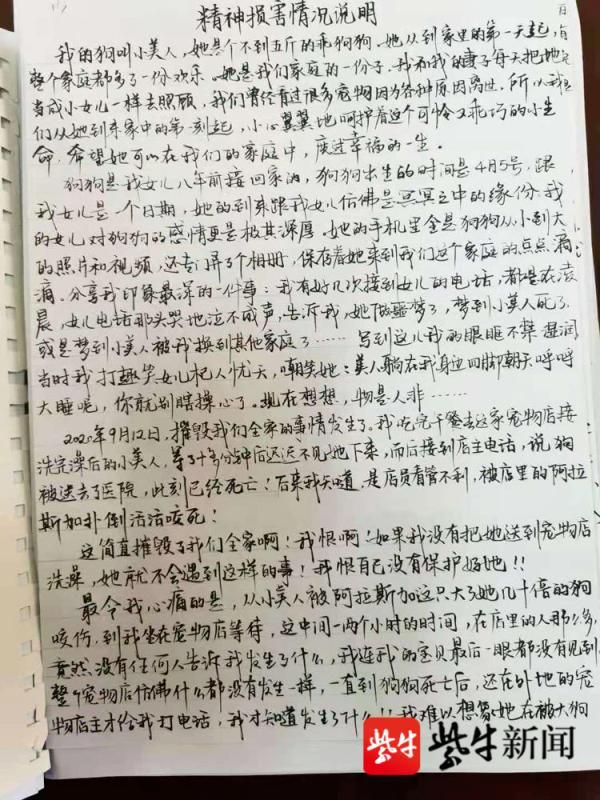 精神损害情况说明
我的狗叫小美人，她是个不到五斤的乖狗狗。她从到家里的第一天起，
整个家庭都多了一份欢乐。她是我们家庭的一份子，我和我的妻子每天把她
当成小女儿一样去照顾，我们曾经有过很多宠物因为各种原因离世。所以我
们从她到来家中的第一刻起，小心翼翼地呵护着这个可怜又乖巧的小生
命，希望她可以在我们的家庭中，度过幸福的一生。
狗狗是我女儿八年前接回家的，狗狗出生的时间是4月5号，跟
我女儿是一个日期，她的到来跟我女儿仿佛是冥冥之中的缘份。我
的女儿对狗狗的感情更是极其深厚。她的手机里全是狗狗从小到大
的照片和视频，还专门弄了个相册，保存着她来到我们这个家庭的点点滴
滴。分享我印象最深的一件事：我有好几次接到女儿的电话，都是在凌
晨，女儿电话那头哭地泣不成声，告诉我，她做噩梦了，梦到小美人死了，
或是梦到小美人被我换到其他家庭了……写到这儿我的眼眶不禁湿润
当时我打趣笑女儿杞人忧天，嘲笑她：美人躺在我身边四脚朝天呼呼
大睡呢，你就别瞎操心了。现在想想，物是人非……
2020年9月12日，摧毁我们全家的事情发生了。我吃完午餐去这家宠物店接
洗完澡后的小美人，等了十多分钟后迟迟不见她下来，而后接到店主电话，说狗
被送去了医院，此刻已经死亡！后来我知道，是店员看管不利，被店里的阿拉
斯加扑倒活活咬死！
这简直摧毁了我们全家啊！我恨啊！如果我没有把她送到宠物店
洗澡，她就不会遇到这样的事！我恨自己没有保护好她！！
最令我心痛的是，从小美人被阿拉斯加这只大了她几十倍的狗
咬伤，到我坐在宠物店等待，这中间一两个小时的时间，在店里的人那么多，
竟然没有任何人告诉我发生了什么，我连我的宝贝最后一眼都没有见到，
整个宠物店仿佛什么都没有发生一样，一直到狗狗死亡后，还在外地的宠
物店主才给我打电话，我才知道发生了什么！！我难以想象她在被大狗
紫牛新闻